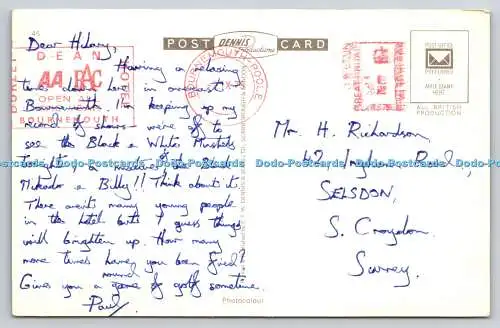 45
POST CARD
DENNIS
Productions
DEAN
AA RAC
OPEN AL
BOURNEMOUTH
BOURNEMOUTH-POOLE
POSTCARD
PREFERRED
AFFIX STAMP
HERE
ALL BRITISH
PRODUCTION
Dear Hilary,
Having a relaxing
time down here in overcast
Bournemouth. I'm keeping up my
record of shows - we're off to
see the Black & White Minstrels
tonight - a
Mikado & Billy!! Think about it.
There aren't many young people
in the hotel but I guess things
will brighten up. How many
more times have you been fired?
Gives you a round game of golf sometime.
Paul.
Mr H. Richardson,
42, Ingham Road,
SELSDON,
S. Croydon,
Surrey.
Photocolour
Dodo-Postcards Dodo-Postcards Dodo-Postcards Dodo-Postcards Dodo-Postcards Dodo-Postcards